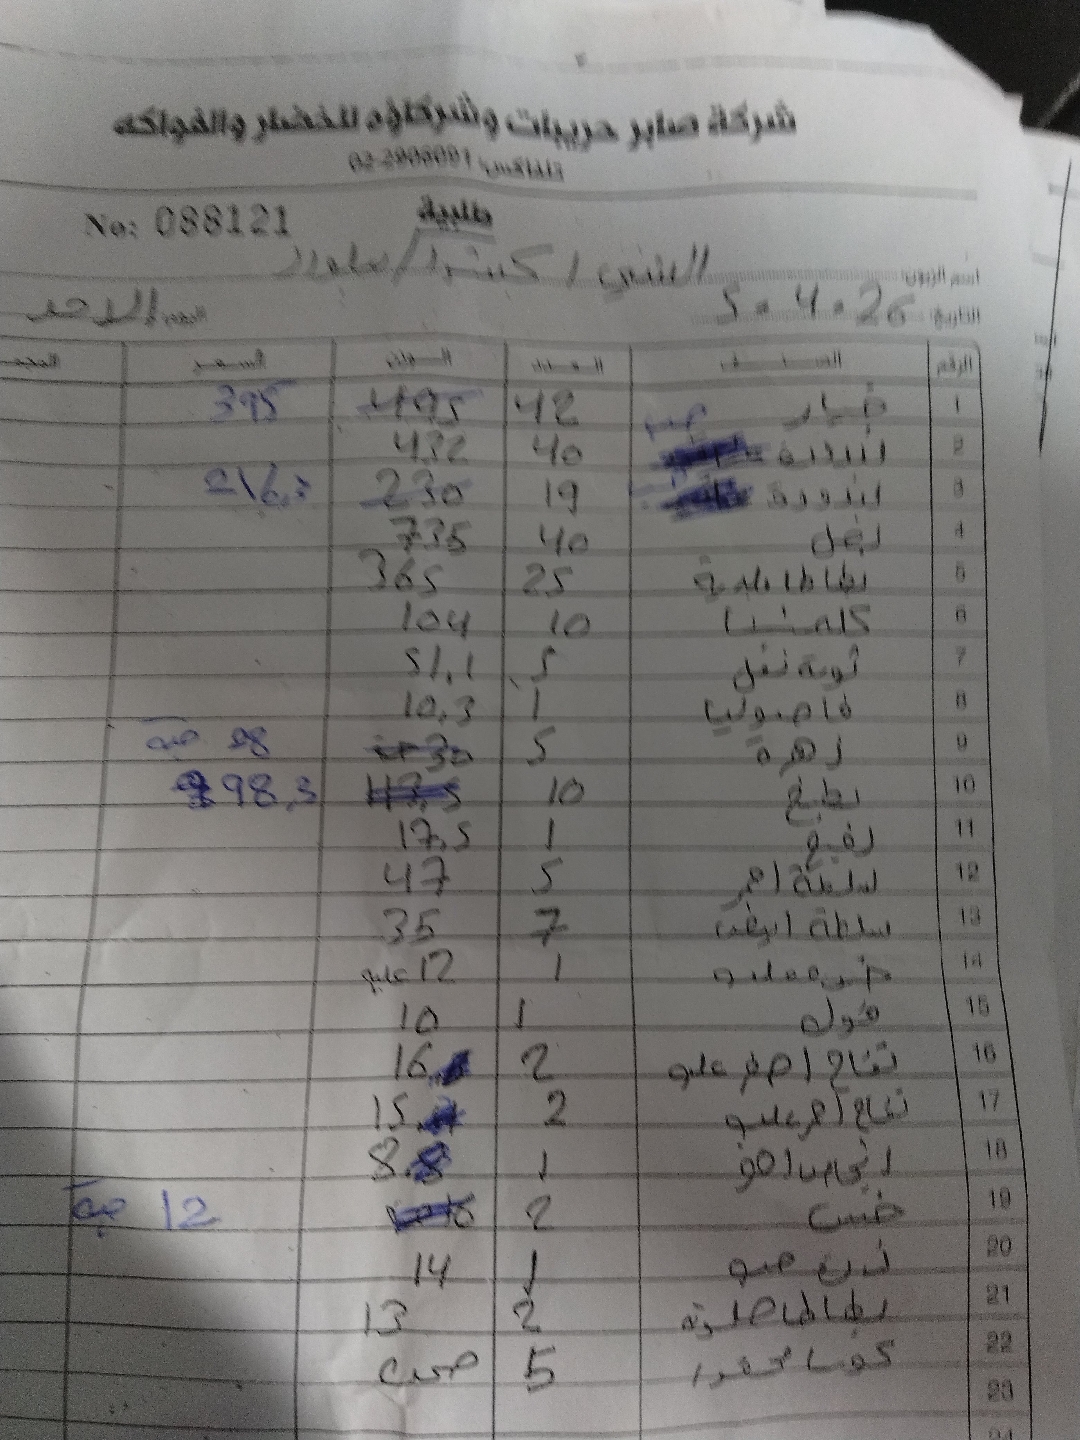 شركة صابر حريبات وشركاؤه للخضار والفواكه
تلفاكس: 02-2906091
طلبية
No: 088121
اسم الزبون:
التاريخ: 5.4.26 اليوم: الاحد
الرقم الصنف العدد الوزن السعر
1 خيار 42 495 395
2 بندورة 40 432
3 بندورة 19 230 216.3
4 بصل 40 735
5 بطاطا 25 365
6 كلمنتينا 10 104
7 ثومة نفل 5 51.1
8 فاصوليا 1 10.3
9 زهرة 5 30 98 حبة
10 بطيخ 10 98.3
11 1 17.5
12 سلطة احمر 5 47
13 سلطة ابيض 7 35
14 1 12 علبه
15 فول 1 10
16 تفاح اصفر علبه 2 16
17 تفاح احمر علبه 2 15
18 1 8.8
19 خس 2 12 حبة
20 1 14
21 بطاطا حلوة 2 13
22 5 حبة
23
24